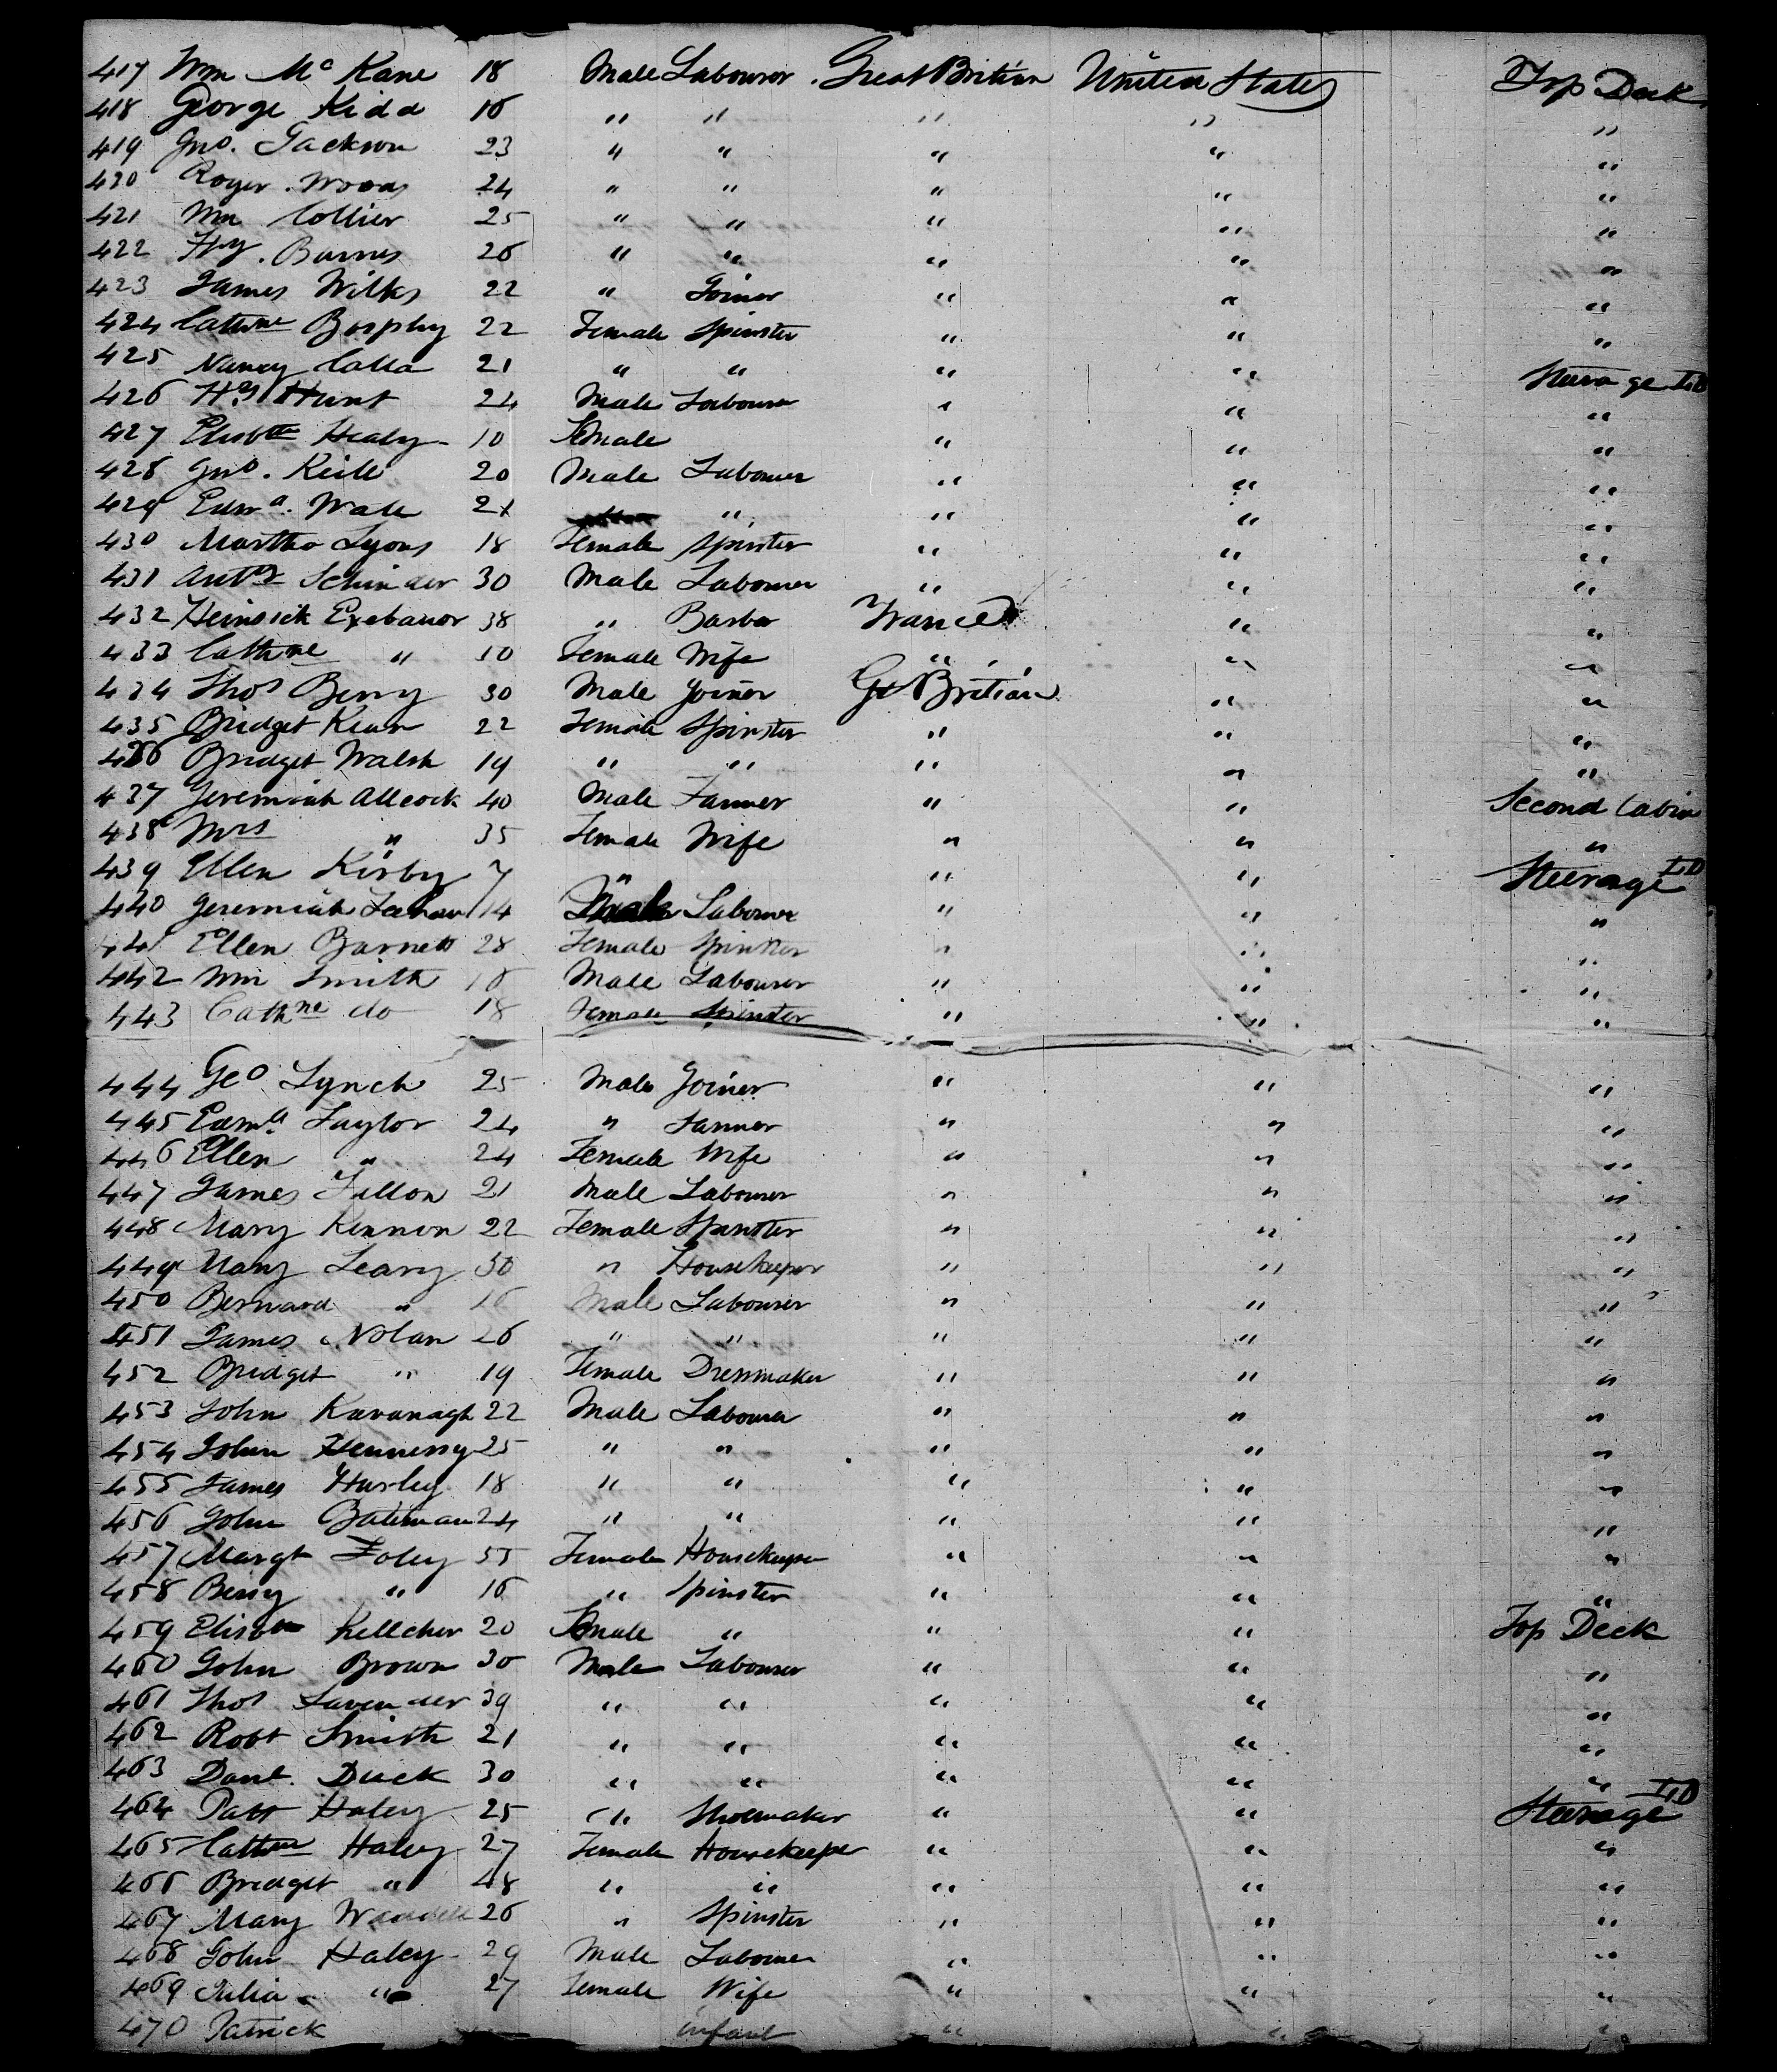 417 Wm McKane 18 Male Labourer Great Britian United States Top Deck
418 George Kidd 16 " " " " "
419 Jno. Jackson 23 " " " " "
420 Roger Woods 24 " " " " "
421 Wm Collier 25 " " " " "
422 Hy. Barnes 26 " " " " "
423 James Wilks 22 " Joiner " " "
424 Cathne Borphy 22 Female Spinster " " "
425 Nancy Calla 21 " " " " Steerage LD
426 Hy Hunt 24 Male Labourer " " "
427 Elisbth Healy 10 Female " " "
428 Jno. Keile 20 Male Labourer " " "
429 Edwd. Wale 21 " " " "
430 Martha Lyons 18 Female Spinster " " "
431 Anty Schinder 30 Male Labourer " " "
432 Heinrick Exebanor 38 " Barber France " "
433 Cathne " 30 Female Wife " " "
434 Thos Berry 30 Male Joiner Gt Britian " "
435 Bridget Kean 22 Female Spinster " " "
436 Bridget Walsh 19 " " " " "
437 Jeremiah Allcock 40 Male Farmer " " Second Cabin
438 Mrs " 35 Female Wife " " "
439 Ellen Kirby 7 " " " Steerage LD
440 Jeremiah 14 Male Labourer " " "
441 Ellen Barnett 28 Female Spinster " " "
442 Wm Smith 18 Male Labourer " " "
443 Cathne do 18 Female Spinster " " "
444 Geo Lynch 25 Male Joiner " " "
445 Edmd. Taylor 24 " Farmer " " "
446 Ellen " 24 Female Wife " " "
447 James Fallon 21 Male Labourer " " "
448 Mary Kennon 22 Female Spinster " " "
449 Mary Leary 50 " Housekeeper " " "
450 Bernard " 16 Male Labourer " " "
451 James Nolan 26 " " " " "
452 Bridget " 19 Female Dressmaker " " "
453 John Kavanagh 22 Male Labourer " " "
454 John Hennessy 25 " " " " "
455 James Hurley 18 " " " " "
456 John Bateman 24 " " " " "
457 Margt Foley 55 Female Housekeeper " " "
458 Bessy " 16 " Spinster " " "
459 Elisbth Kellcher 20 Female " " " Top Deck
460 John Brown 30 Male Labourer " " "
461 Thos Lavender 39 " " " " "
462 Robt Smith 21 " " " " "
463 Danl. Duck 30 " " " " "
464 Patt Haley 25 " Shoemaker " " Steerage LD
465 Cathne Haley 27 Female Housekeeper " " "
466 Bridget " 48 " " " " "
467 Mary 26 " Spinster " " "
468 John Haley 29 Male Labourer " " "
469 Julia " 27 Female Wife " " "
470 Patrick infant " " "